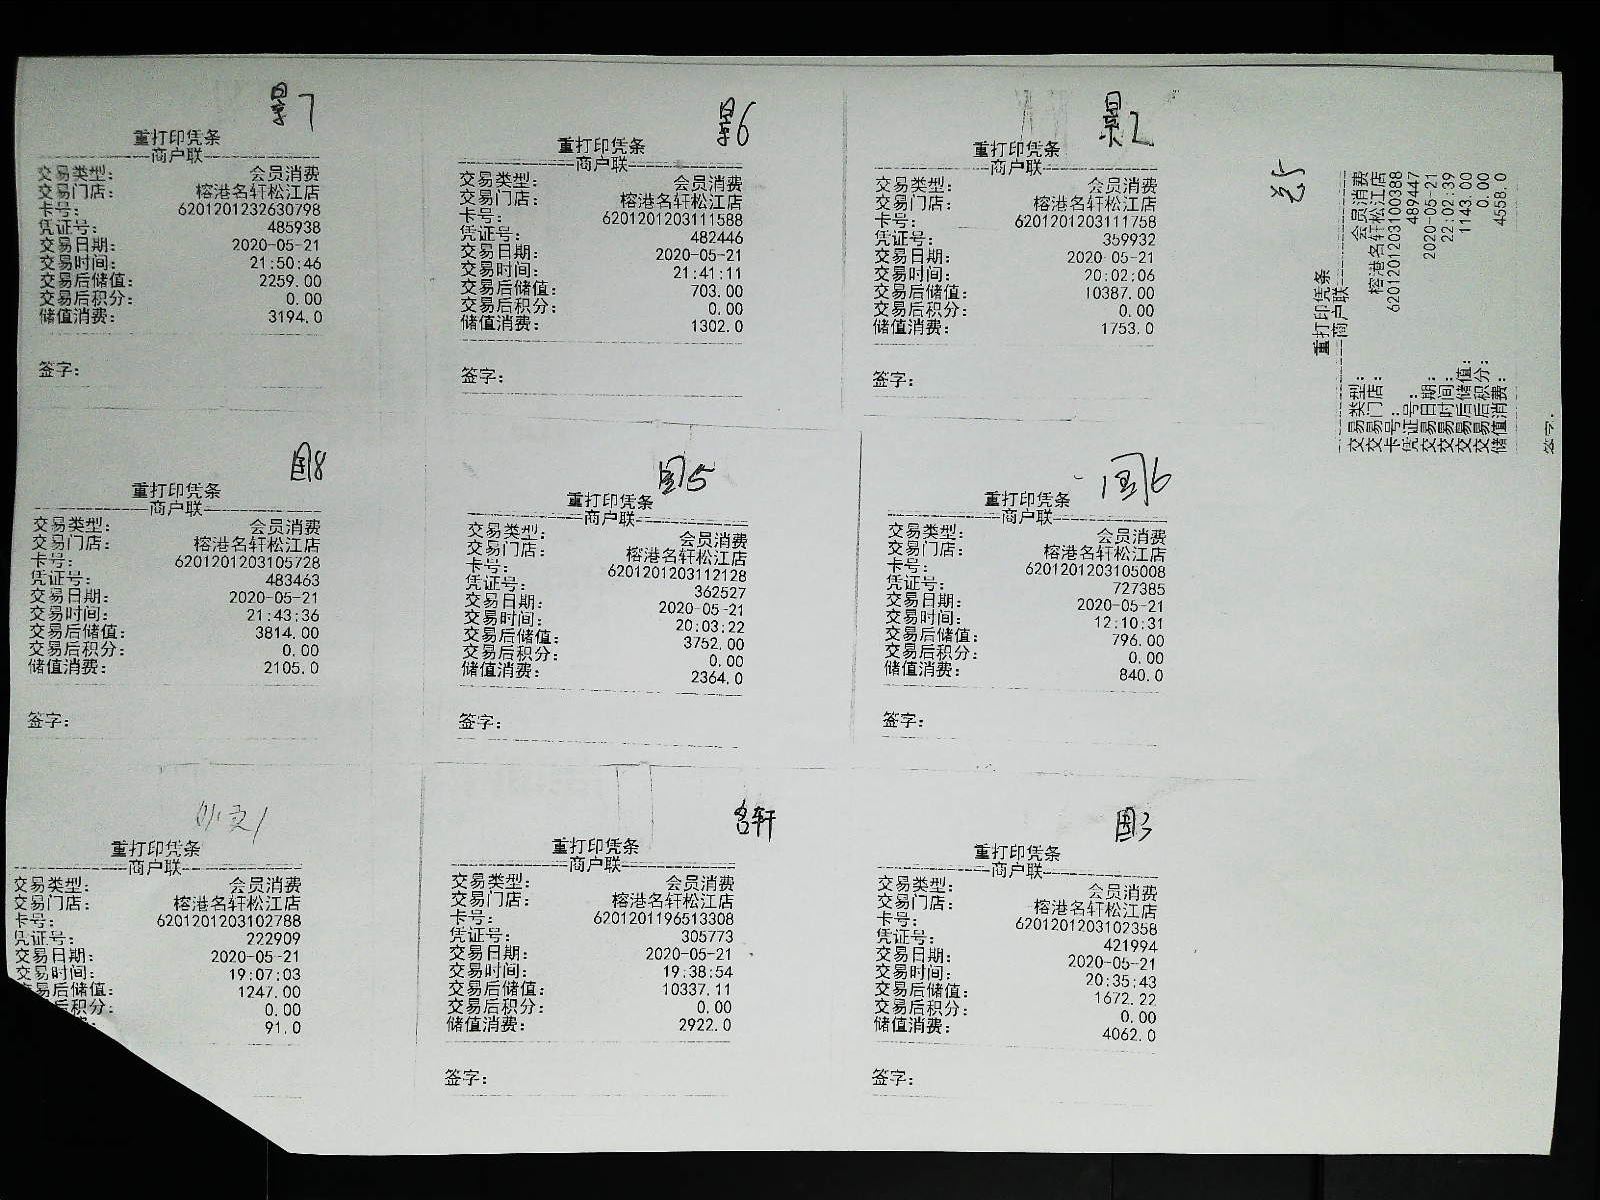 景7
重打印凭条
商户联
交易类型： 会员消费
交易门店： 榕港名轩松江店
卡号： 6201201232630798
凭证号： 485938
交易日期： 2020-05-21
交易时间： 21:50:46
交易后储值： 2259.00
交易后积分： 0.00
储值消费： 3194.0
签字：
景6
重打印凭条
商户联
交易类型： 会员消费
交易门店： 榕港名轩松江店
卡号： 6201201203111588
凭证号： 482446
交易日期： 2020-05-21
交易时间： 21:41:11
交易后储值： 703.00
交易后积分： 0.00
储值消费： 1302.0
签字：
景2
重打印凭条
商户联
交易类型： 会员消费
交易门店： 榕港名轩松江店
卡号： 6201201203111758
凭证号： 359932
交易日期： 2020-05-21
交易时间： 20:02:06
交易后储值： 10387.00
交易后积分： 0.00
储值消费： 1753.0
签字：
重打印凭条
商户联
交易类型： 会员消费
交易门店： 榕港名轩松江店
卡号： 6201201203100388
凭证号： 489447
交易日期： 2020-05-21
交易时间： 22:02:39
交易后储值： 1143.00
交易后积分： 0.00
储值消费： 4558.0
签字：
国8
重打印凭条
商户联
交易类型： 会员消费
交易门店： 榕港名轩松江店
卡号： 6201201203105728
凭证号： 483463
交易日期： 2020-05-21
交易时间： 21:43:36
交易后储值： 3814.00
交易后积分： 0.00
储值消费： 2105.0
签字：
国5
重打印凭条
商户联
交易类型： 会员消费
交易门店： 榕港名轩松江店
卡号： 6201201203112128
凭证号： 362527
交易日期： 2020-05-21
交易时间： 20:03:22
交易后储值： 3752.00
交易后积分： 0.00
储值消费： 2364.0
签字：
国6
重打印凭条
商户联
交易类型： 会员消费
交易门店： 榕港名轩松江店
卡号： 6201201203105008
凭证号： 727385
交易日期： 2020-05-21
交易时间： 12:10:31
交易后储值： 796.00
交易后积分： 0.00
储值消费： 840.0
签字：
重打印凭条
商户联
交易类型： 会员消费
交易门店： 榕港名轩松江店
卡号： 6201201203102788
凭证号： 222909
交易日期： 2020-05-21
交易时间： 19:07:03
交易后储值： 1247.00
后积分： 0.00
91.0
名轩
重打印凭条
商户联
交易类型： 会员消费
交易门店： 榕港名轩松江店
卡号： 6201201196513308
凭证号： 305773
交易日期： 2020-05-21
交易时间： 19:38:54
交易后储值： 10337.11
交易后积分： 0.00
储值消费： 2922.0
签字：
国3
重打印凭条
商户联
交易类型： 会员消费
交易门店： 榕港名轩松江店
卡号： 6201201203102358
凭证号： 421994
交易日期： 2020-05-21
交易时间： 20:35:43
交易后储值： 1672.22
交易后积分： 0.00
储值消费： 4062.0
签字：